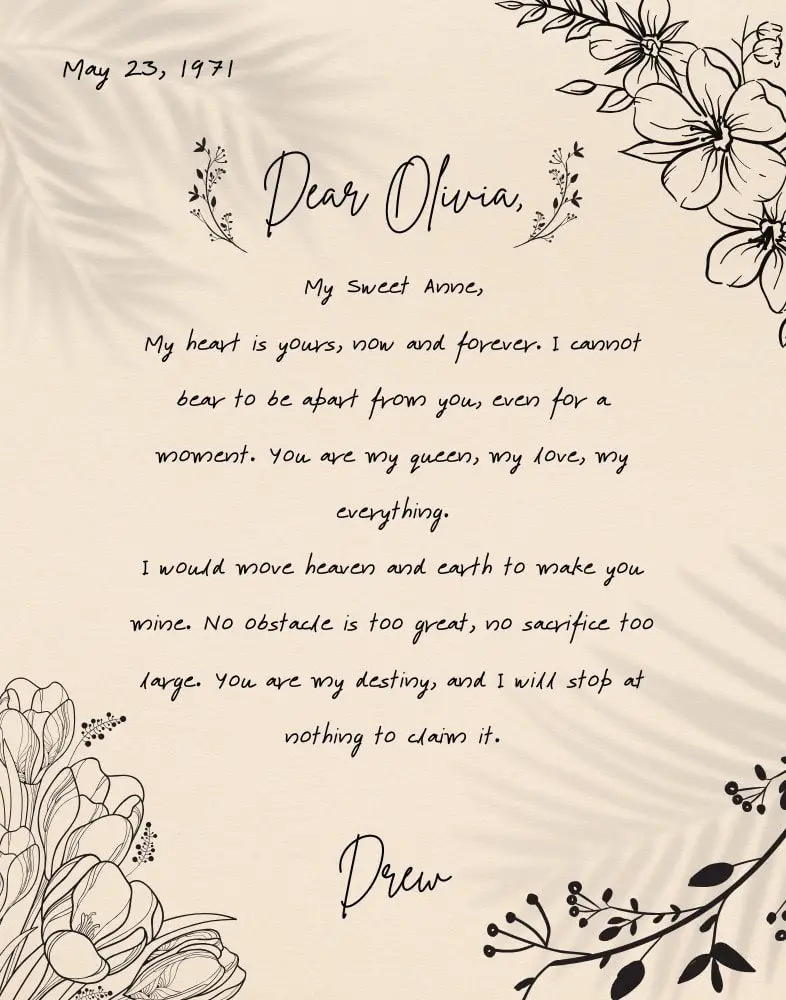 May 23, 1971
Dear Olivia,
My Sweet Anne,
My heart is yours, now and forever. I cannot
bear to be apart from you, even for a
moment. You are my queen, my love, my
everything.
I would move heaven and earth to make you
mine. No obstacle is too great, no sacrifice too
large. You are my destiny, and I will stop at
nothing to claim it.
Drew